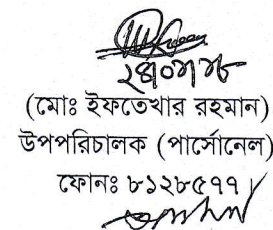 (মোঃ ইফতেখার রহমান)
উপপরিচালক (পার্সোনেল)
ফোনঃ ৮১২৮৫৭৭